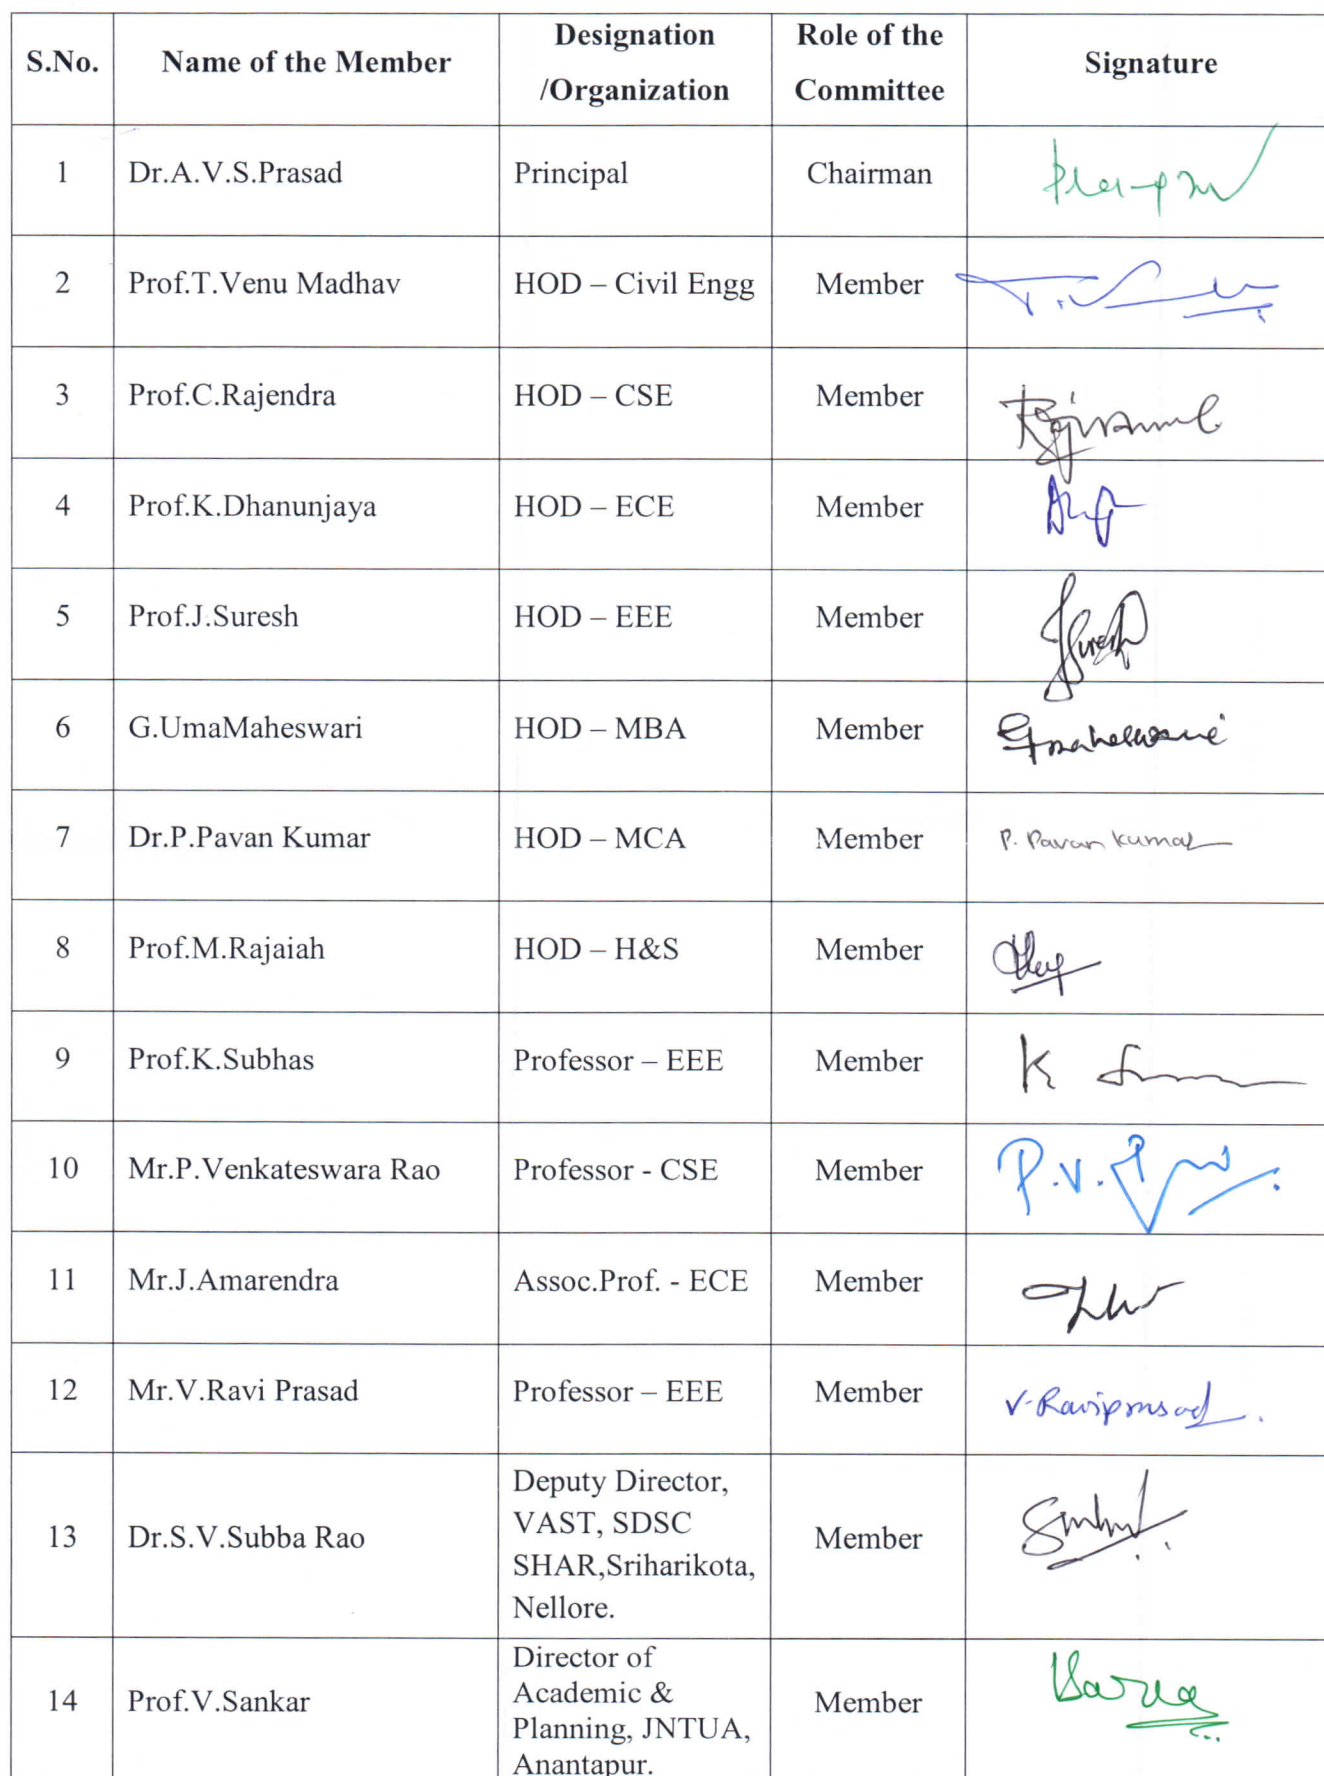 S.No. Name of the Member Designation /Organization Role of the Committee Signature
1 Dr.A.V.S.Prasad Principal Chairman
2 Prof.T.Venu Madhav HOD – Civil Engg Member
3 Prof.C.Rajendra HOD – CSE Member
4 Prof.K.Dhanunjaya HOD – ECE Member
5 Prof.J.Suresh HOD – EEE Member JSuresh
6 G.UmaMaheswari HOD – MBA Member Gmaheswari
7 Dr.P.Pavan Kumar HOD – MCA Member P. Pavan Kumar
8 Prof.M.Rajaiah HOD – H&S Member
9 Prof.K.Subhas Professor – EEE Member K
10 Mr.P.Venkateswara Rao Professor - CSE Member P.V.
11 Mr.J.Amarendra Assoc.Prof. - ECE Member
12 Mr.V.Ravi Prasad Professor – EEE Member V.Raviprasad
13 Dr.S.V.Subba Rao Deputy Director,
VAST, SDSC
SHAR,Sriharikota,
Nellore. Member
14 Prof.V.Sankar Director of
Academic &
Planning, JNTUA,
Anantapur. Member